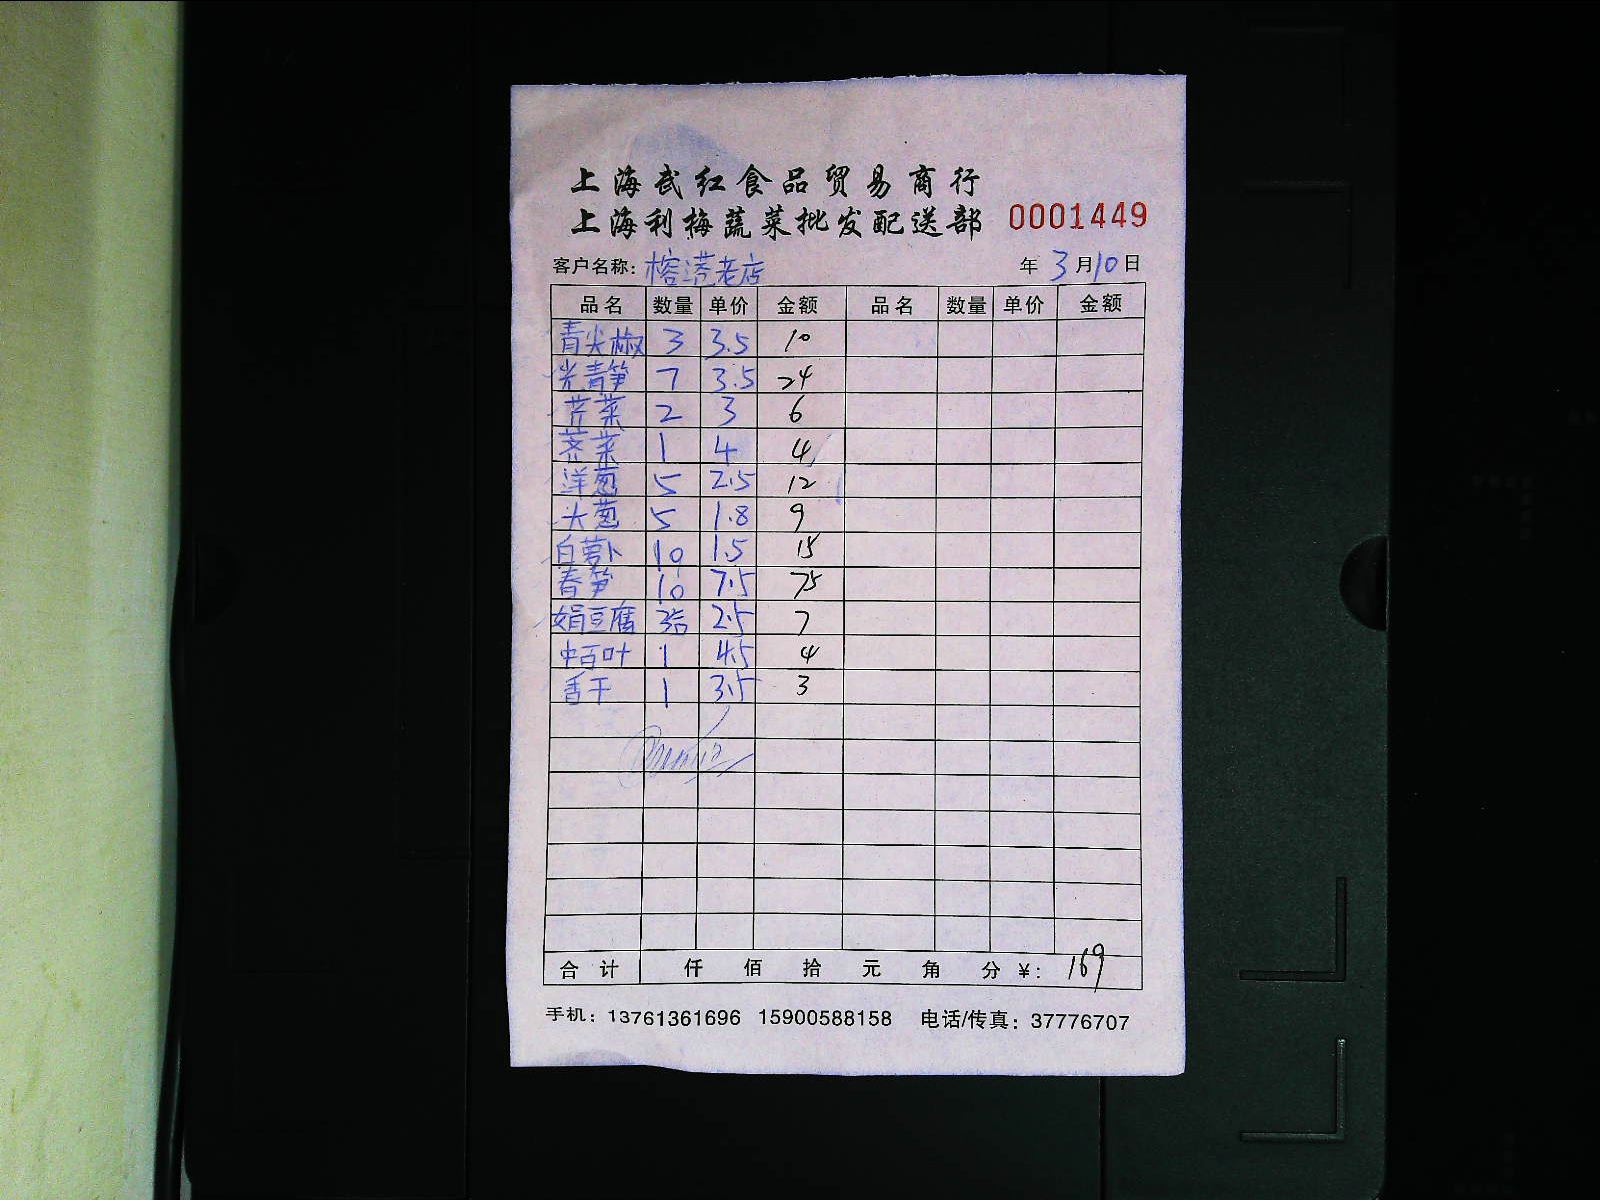 上海武红食品贸易商行
上海利梅蔬菜批发配送部 0001449
客户名称: 榕港老店 年 3月10日
品名 数量 单价 金额 品名 数量 单价 金额
青尖椒 3 3.5 10
光青笋 7 3.5 24
芹菜 2 3 6
荠菜 1 4 4
洋葱 5 2.5 12
大葱 5 1.8 9
白萝卜 10 1.5 15
春笋 10 7.5 75
娟豆腐 3 2.5 7
中百叶 1 4.5 4
香干 1 3.5 3
合计 仟 佰 拾 元 角 分 ¥: 169
手机: 13761361696 15900588158 电话/传真: 37776707